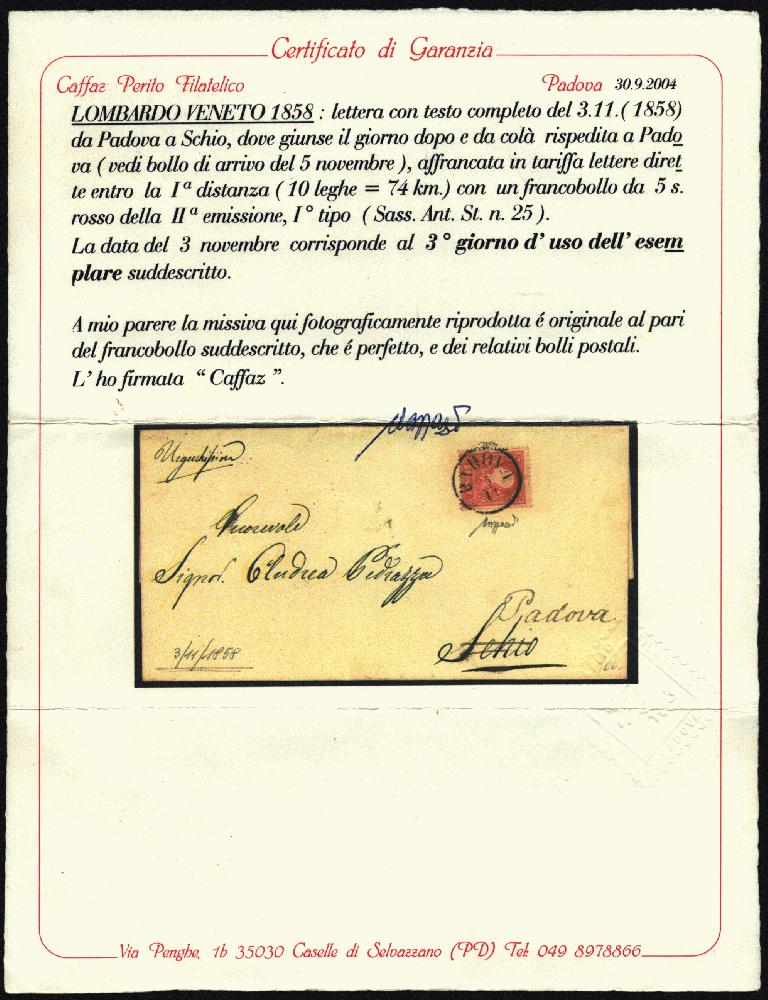 Certificato di Garanzia
Caffaz Perito Filatelico
Padova 30.9.2004
LOMBARDO VENETO 1858 : lettera con testo completo del 3.11.( 1858)
da Padova a Schio, dove giunse il giorno dopo e da colà rispedita a Pado
va ( vedi bollo di arrivo del 5 novembre ), affrancata in tariffa lettere diret
te entro la Iª distanza ( 10 leghe = 74 km.) con un francobollo da 5 s.
rosso della IIª emissione, I° tipo ( Sass. Ant. St. n. 25 ).
La data del 3 novembre corrisponde al 3° giorno d' uso dell' esem
plare suddescritto.
A mio parere la missiva qui fotograficamente riprodotta é originale al pari
del francobollo suddescritto, che é perfetto, e dei relativi bolli postali.
L' ho firmata " Caffaz ".
PADOVA
Signor.
Padova
Schio
3/11/1858
Via Penghe, 1b 35030 Caselle di Selvazzano (PD) Tel: 049 8978866